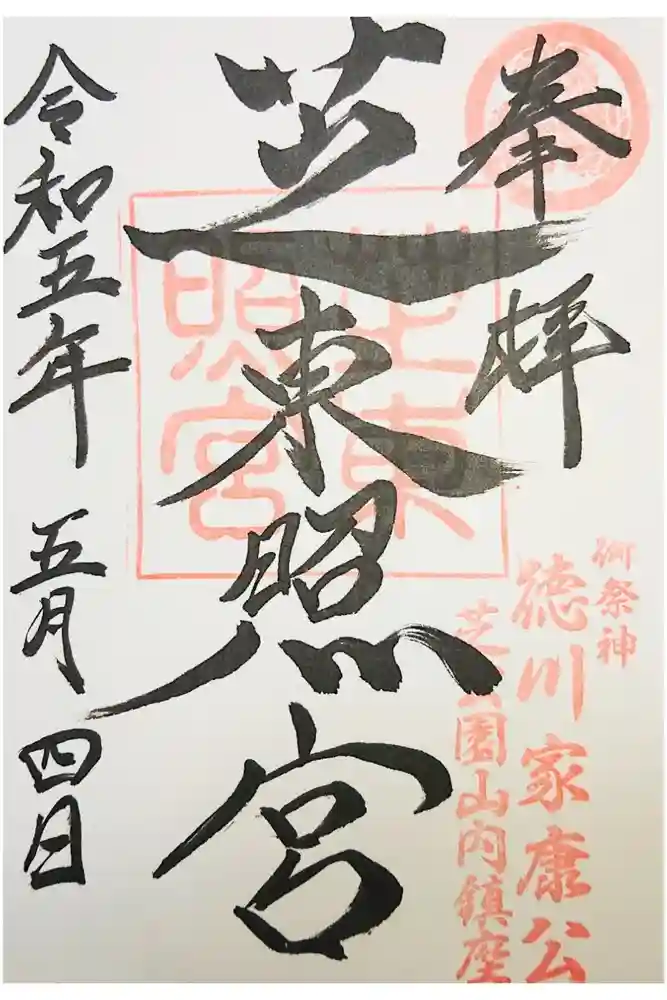 奉拝
御祭神
徳川家康公
芝公園山内鎮座
芝東照宮
芝東
照宮
令和五年
五月
四日